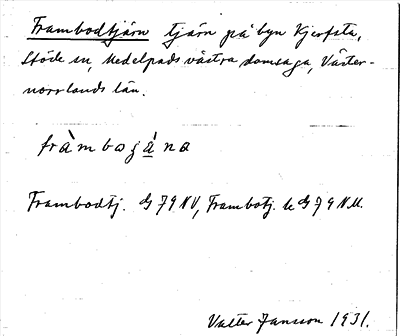 Frambodtjärn tjärn på byn Kjerfsta,
Stöde sn, Medelpads västra domsaga, Väster-
norrlands län.
fràmboɡána
Frambodtj. G 79 NV, Frambotj. le G 79 N.M.
Valter Jansson 1931.